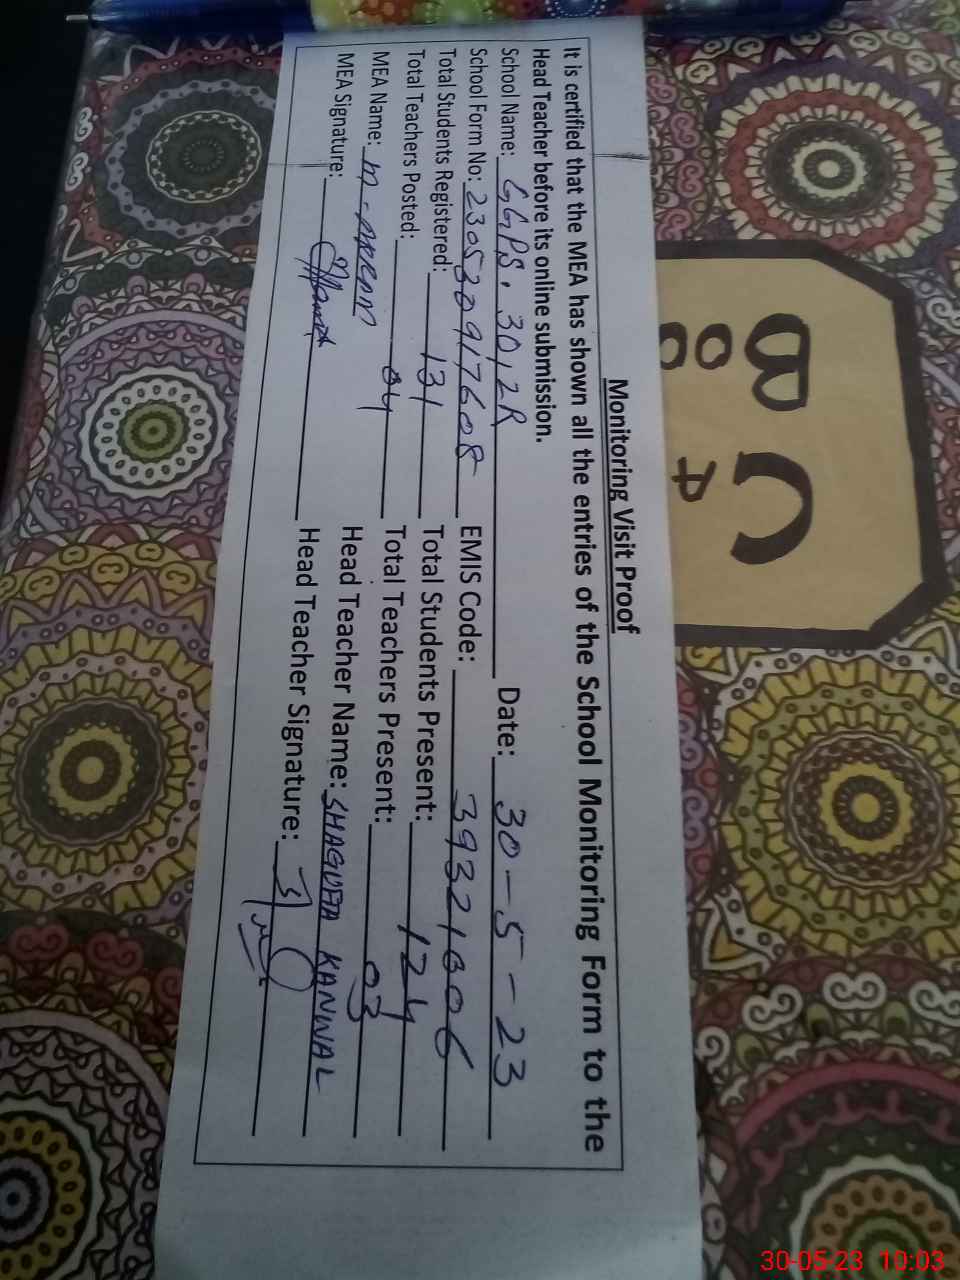 Monitoring Visit Proof
It is certified that the MEA has shown all the entries of the School Monitoring Form to the
Head Teacher before its online submission.
School Name: GGPS. 30,2R Date: 30-5-23
School Form No: 230530917608 EMIS Code: 39321606
Total Students Registered: 131 Total Students Present: 124
Total Teachers Posted: 04 Total Teachers Present: 03
MEA Name: M-AKRAM Head Teacher Name: SHAGUFTA KANWAL
MEA Signature: Head Teacher Signature:
30-05-23 10:03